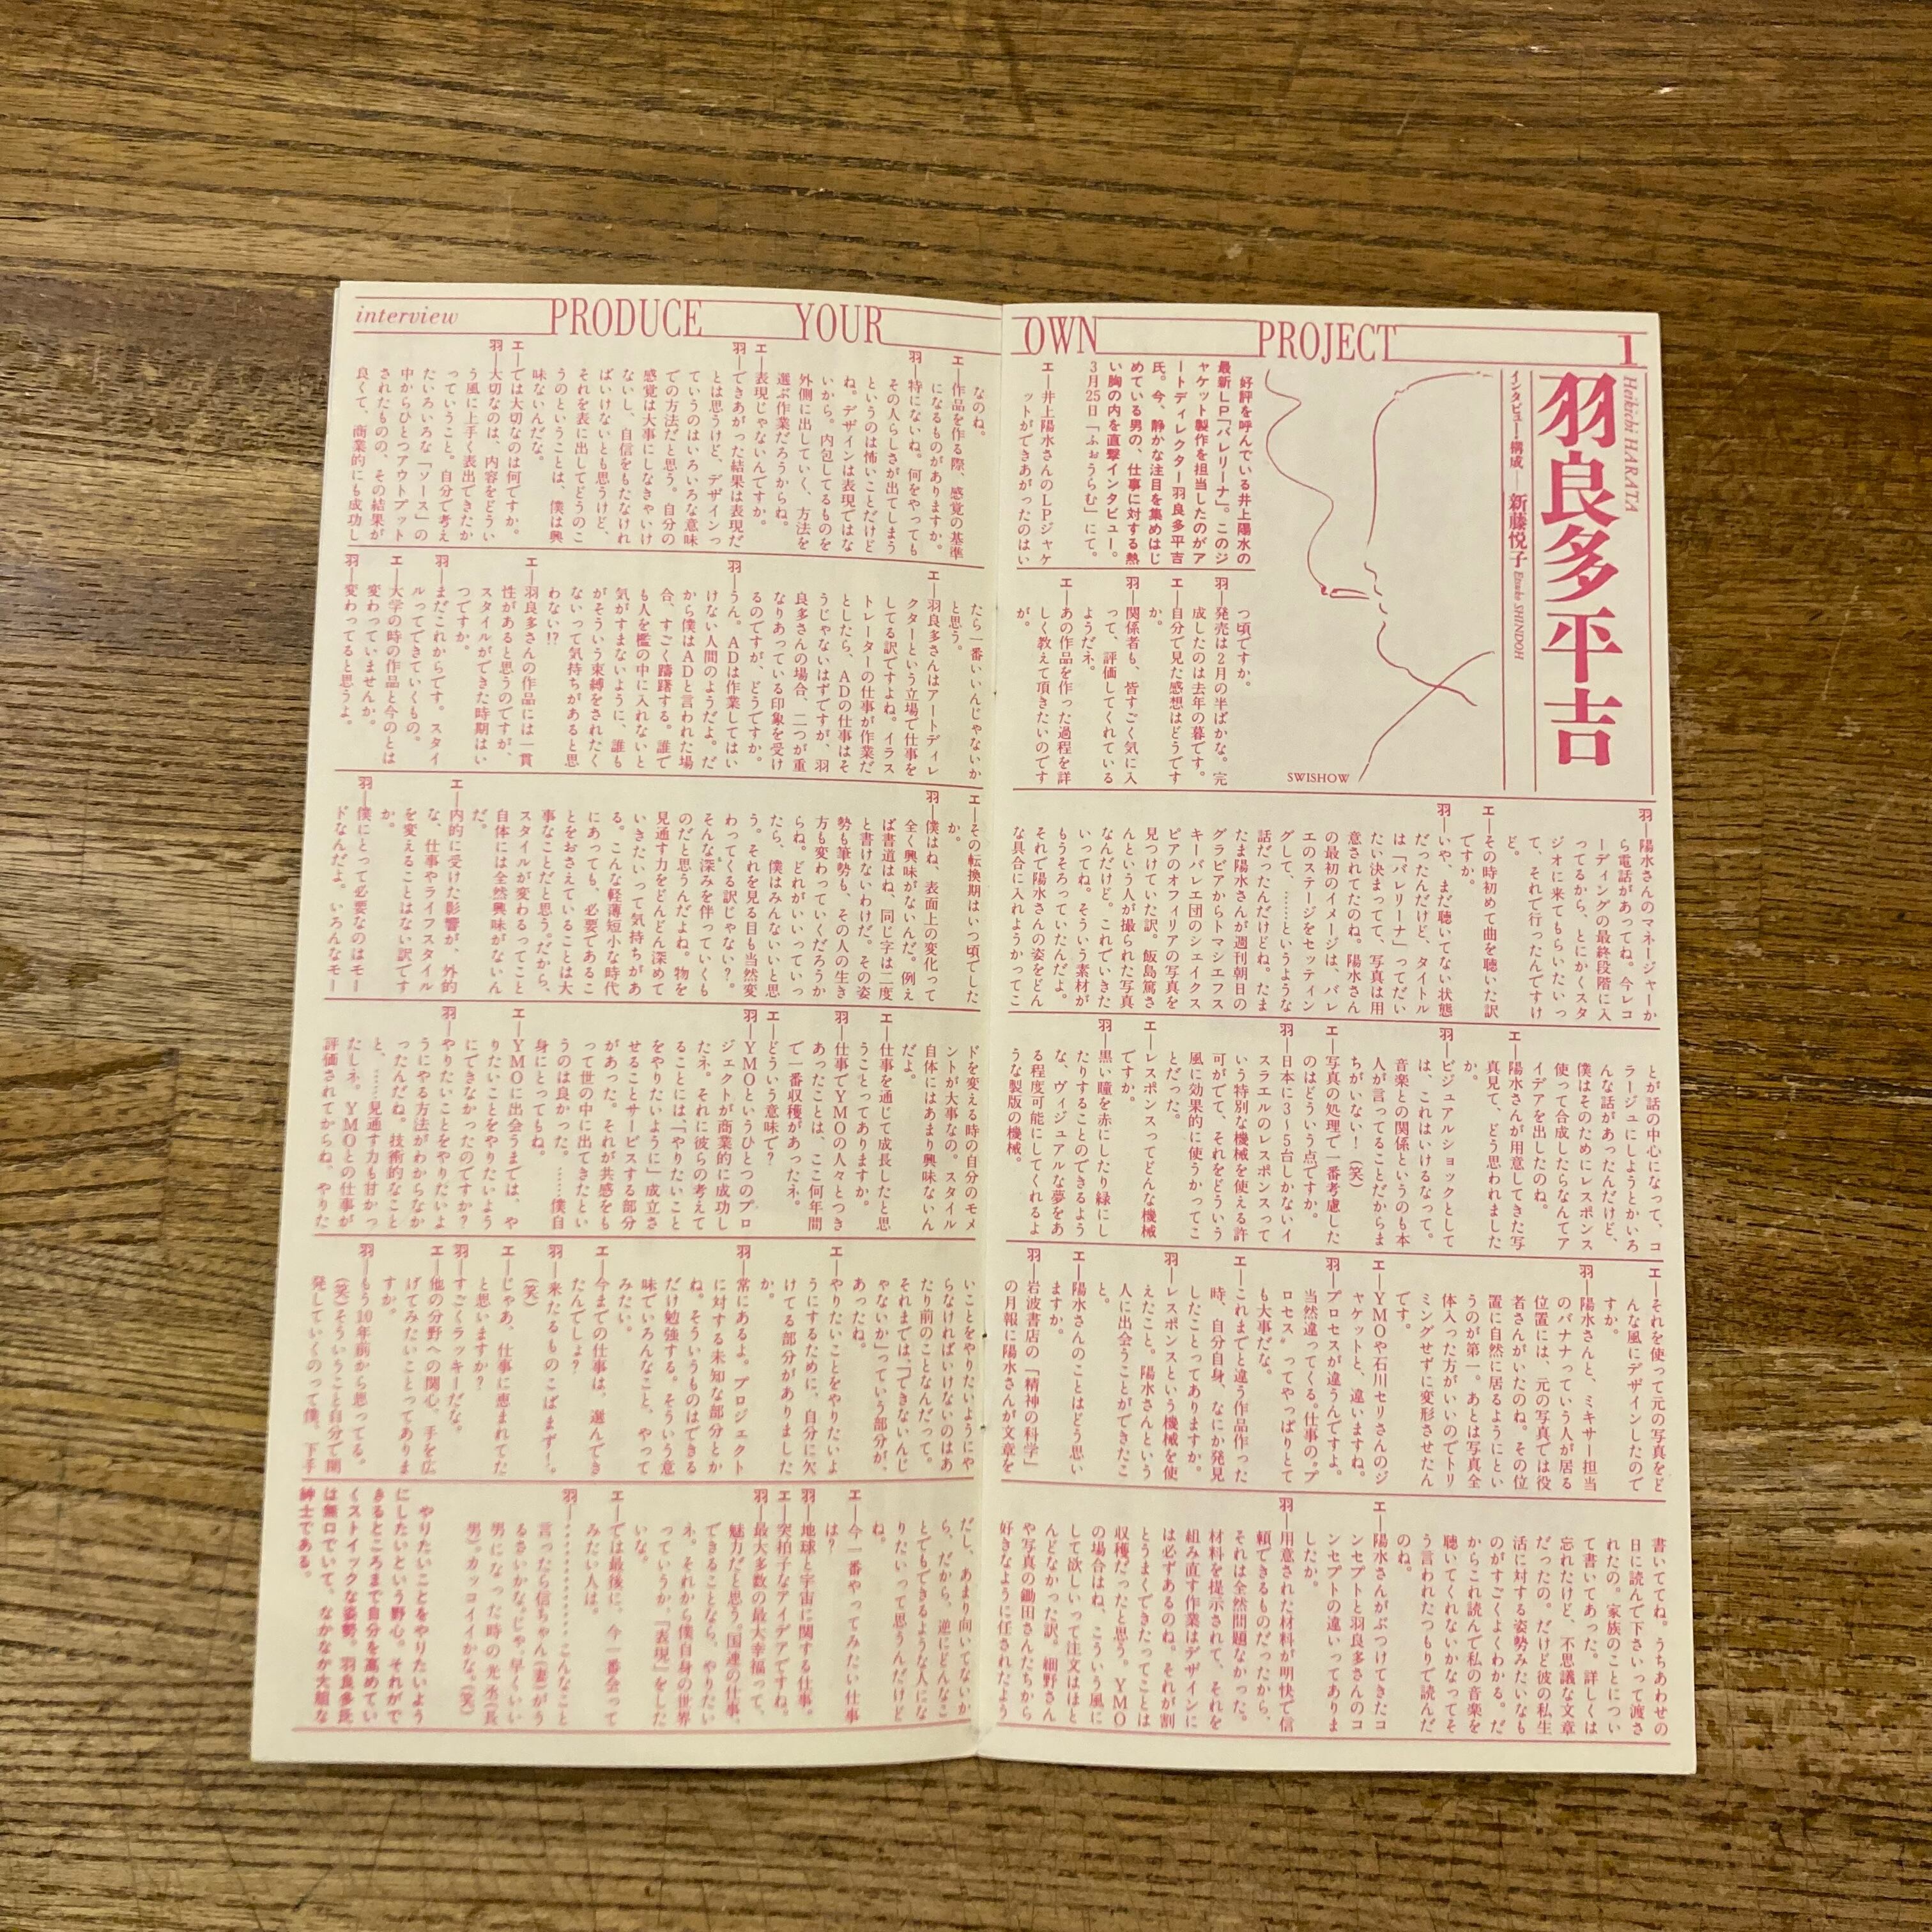 interview PRODUCE YOUR OWN PROJECT 1
羽良多平吉
Heikichi HARATA
インタビュー・構成──新藤悦子 Etsuko SHINDOH
SWISHOW
好評を呼んでいる井上陽水の
最新LP「バレリーナ」。このジ
ャケット製作を担当したのがア
ートディレクター羽良多平吉
氏。今、静かな注目を集めはじ
めている男の、仕事に対する熱
い胸の内を直撃インタビュー。
3月25日「ふぉうらむ」にて。
エ─井上陽水さんのLPジャケ
ットができあがったのはい
つ頃ですか。
羽─発売は2月の半ばかな。完
成したのは去年の暮です。
エ─自分で見た感想はどうです
か。
羽─関係者も、皆すごく気に入
って、評価してくれている
ようだネ。
エ─あの作品を作った過程を詳
しく教えて頂きたいのです
が。
羽─陽水さんのマネージャーか
ら電話があってね。今レコ
ーディングの最終段階に入
ってるから、とにかくスタ
ジオに来てもらいたいっ
て、それで行ったんですけ
ど。
エ─その時初めて曲を聴いた訳
ですか。
羽─いや、まだ聴いてない状態
だったんだけど、タイトル
は「バレリーナ」ってだい
たい決まってて、写真は用
意されてたのね。陽水さん
の最初のイメージは、バレ
エのステージをセッティン
グして、………というような
話だったんだけどね。たま
たま陽水さんが週刊朝日の
グラビアからトマシエフス
キーバレエ団のシェイクス
ピアのオフィリアの写真を
見つけていた訳。飯島篤さ
んという人が撮られた写真
なんだけど。これでいきた
いってね。そういう素材が
もうそろっていたんだよ。
それで陽水さんの姿をどん
な具合に入れようかってこ
とが話の中心になって、コ
ラージュにしようとかいろ
んな話があったんだけど、
僕はそのためにレスポンス
使って合成したらなんてア
イデアを出したのね。
エ─陽水さんが用意してきた写
真見て、どう思われました
か。
羽─ビジュアルショックとして
は、これはいけるなって。
音楽との関係というのも本
人が言ってることだからま
ちがいない!(笑)
エ─写真の処理で一番考慮した
のはどういう点ですか。
羽─日本に3〜5台しかないイ
スラエルのレスポンスって
いう特別な機械を使える許
可がでて、それをどういう
風に効果的に使うかってこ
とだった。
エ─レスポンスってどんな機械
ですか。
羽─黒い瞳を赤にしたり緑にし
たりすることのできるよう
な、ヴィジュアルな夢をあ
る程度可能にしてくれるよ
うな製版の機械。
エ─それを使って元の写真をど
んな風にデザインしたので
すか。
羽─陽水さんと、ミキサー担当
のバナナっていう人が居る
位置には、元の写真では役
者さんがいたのね。その位
置に自然に居るようにとい
うのが第一。あとは写真全
体入った方がいいのでトリ
ミングせずに変形させたん
です。
エ─YMOや石川セリさんのジ
ャケットと、違いますね。
羽─プロセスが違うんですよ。
当然違ってくる。仕事の〝プ
ロセス〟ってやっぱりとて
も大事だな。
エ─これまでと違う作品作った
時、自分自身、なにか発見
したことってありますか。
羽─レスポンスという機械を使
えたこと。陽水さんという
人に出会うことができたこ
と。
エ─陽水さんのことはどう思い
ますか。
羽─岩波書店の「精神の科学」
の月報に陽水さんが文章を
書いててね。うちあわせの
日に読んで下さいって渡さ
れたの。家族のことについ
て書いてあった。詳しくは
忘れたけど、不思議な文章
だったの。だけど彼の私生
活に対する姿勢みたいなも
のがすごくよくわかる。だ
からこれ読んで私の音楽を
聴いてくれないかなってそ
う言われたつもりで読んだ
のね。
エ─陽水さんがぶつけてきたコ
ンセプトと羽良多さんのコ
ンセプトの違いってありま
したか。
羽─用意された材料が明快で信
頼できるものだったから、
それは全然問題なかった。
材料を提示されて、それを
組み直す作業はデザインに
は必ずあるのね。それが割
とうまくできたってことは
収穫だったと思う。YMO
の場合はね、こういう風に
して欲しいって注文はほと
んどなかった訳。細野さん
や写真の鋤田さんたちから
好きなように任されたよう
なのね。
エ─作品を作る際、感覚の基準
になるものがありますか。
羽─特にないね。何をやっても
その人らしさが出てしまう
というのは怖いことだけど
ね。デザインは表現ではな
いから。内包してるものを
外側に出していく、方法を
選ぶ作業だろうからね。
エ─表現じゃないんですか。
羽─できあがった結果は表現だ
とは思うけど、デザインっ
ていうのはいろいろな意味
での方法だと思う。自分の
感覚は大事にしなきゃいけ
ないし、自信をもたなけれ
ばいけないとも思うけど、
それを表に出してどうのこ
うのということは、僕は興
味ないんだな。
エ─では大切なのは何ですか。
羽─大切なのは、内容をどうい
う風に上手く表出できたか
っていうこと。自分で考え
たいろいろな「ソース」の
中からひとつアウトプット
されたものの、その結果が
良くて、商業的にも成功し
たら一番いいんじゃないか
と思う。
エ─羽良多さんはアートディレ
クターという立場で仕事を
してる訳ですよね。イラス
トレーターの仕事が作業だ
としたら、ADの仕事はそ
うじゃないはずですが、羽
良多さんの場合、二つが重
なりあっている印象を受け
るのですが、どうですか。
羽─うん。ADは作業してはい
けない人間のようだよ。だ
から僕はADと言われた場
合、すごく躊躇する。誰で
も人を檻の中に入れないと
気がすまないように、誰も
がそういう束縛をされたく
ないって気持ちがあると思
わない!?
エ─羽良多さんの作品には一貫
性があると思うのですが、
スタイルができた時期はい
つですか。
羽─まだこれからです。スタイ
ルってできていくもの。
エ─大学の時の作品と今のとは
変わっていませんか。
羽─変わってると思うよ。
エ─その転換期はいつ頃でした
か。
羽─僕はね、表面上の変化って
全く興味がないんだ。例え
ば書道はね、同じ字は二度
と書けないわけだ。その姿
勢も筆勢も、その人の生き
方も変わっていくだろうか
らね。どれがいいっていっ
たら、僕はみんないいと思
う。それを見る目も当然変
わってくる訳じゃない?。
そんな深みを伴っていくも
のだと思うんだよね。物を
見通す力をどんどん深めて
いきたいって気持ちがあ
る。こんな軽薄短小な時代
にあっても、必要であるこ
とをおさえていることは大
事なことだと思う。だから、
スタイルが変わるってこと
自体には全然興味がないん
だ。
エ─内的に受けた影響が、外的
な、仕事やライフスタイル
を変えることはない訳です
か。
羽─僕にとって必要なのはモー
ドなんだよ。いろんなモー
ドを変える時の自分のモメ
ントが大事なの。スタイル
自体にはあまり興味ないん
だよ。
エ─仕事を通じて成長したと思
うことってありますか。
羽─仕事でYMOの人々とつき
あったことは、ここ何年間
で一番収穫があったネ。
エ─どういう意味で?
羽─YMOというひとつのプロ
ジェクトが商業的に成功し
たネ。それに彼らの考えて
ることには、「やりたいこと
をやりたいように」成立さ
せることとサービスする部分
があった。それが共感をも
って世の中に出てきたとい
うのは良かった。……僕自
身にとってもね。
エ─YMOに出会うまでは、や
りたいことをやりたいよう
にできなかったのですか?
羽─やりたいことをやりたいよ
うにやる方法がわからなか
ったんだね。技術的なこと
と、……見通す力も甘かっ
たしネ。YMOとの仕事が
評価されてからね、やりた
いことをやりたいようにや
らなければいけないのはあ
たり前のことなんだって。
それまでは、「できないんじ
ゃないか」っていう部分が、
あったね。
エ─やりたいことをやりたいよ
うにするために、自分に欠
けてる部分がありました
か。
羽─常にあるよ。プロジェクト
に対する未知な部分とか
ね。そういうものはできる
だけ勉強する。そういう意
味でいろんなこと、やって
みたい。
エ─今までの仕事は、選んでき
たんでしょ?
羽─来たるものこばまず!。
(笑)
エ─じゃあ、仕事に恵まれてた
と思いますか?
羽─すごくラッキーだな。
エ─他の分野への関心、手を広
げてみたいことってありま
すか。
羽─もう10年前から思ってる。
(笑)そういうこと自分で開
発していくのって僕、下手
だし、あまり向いてないか
ら、だから、逆にどんなこ
とでもできるような人にな
りたいって思うんだけど
ね。
エ─今一番やってみたい仕事
は?
羽─地球と宇宙に関する仕事。
エ─突拍子なアイデアですね。
羽─最大多数の最大幸福って、
魅力だと思う。国連の仕事、
できることなら、やりたい
ネ。それから僕自身の世界
っていうか、「表現」をした
いな。
エ─では最後に、今一番会って
みたい人は。
羽─…………こんなこと
言ったら信ちゃん(妻)がう
るさいかな。じゃ、早くいい
男になった時の光丞(長
男)。カッコイイかな。(笑)
やりたいことをやりたいよう
にしたいという野心。それがで
きるところまで自分を高めてい
くストイックな姿勢。羽良多氏
は無口でいて、なかなか大胆な
紳士である。